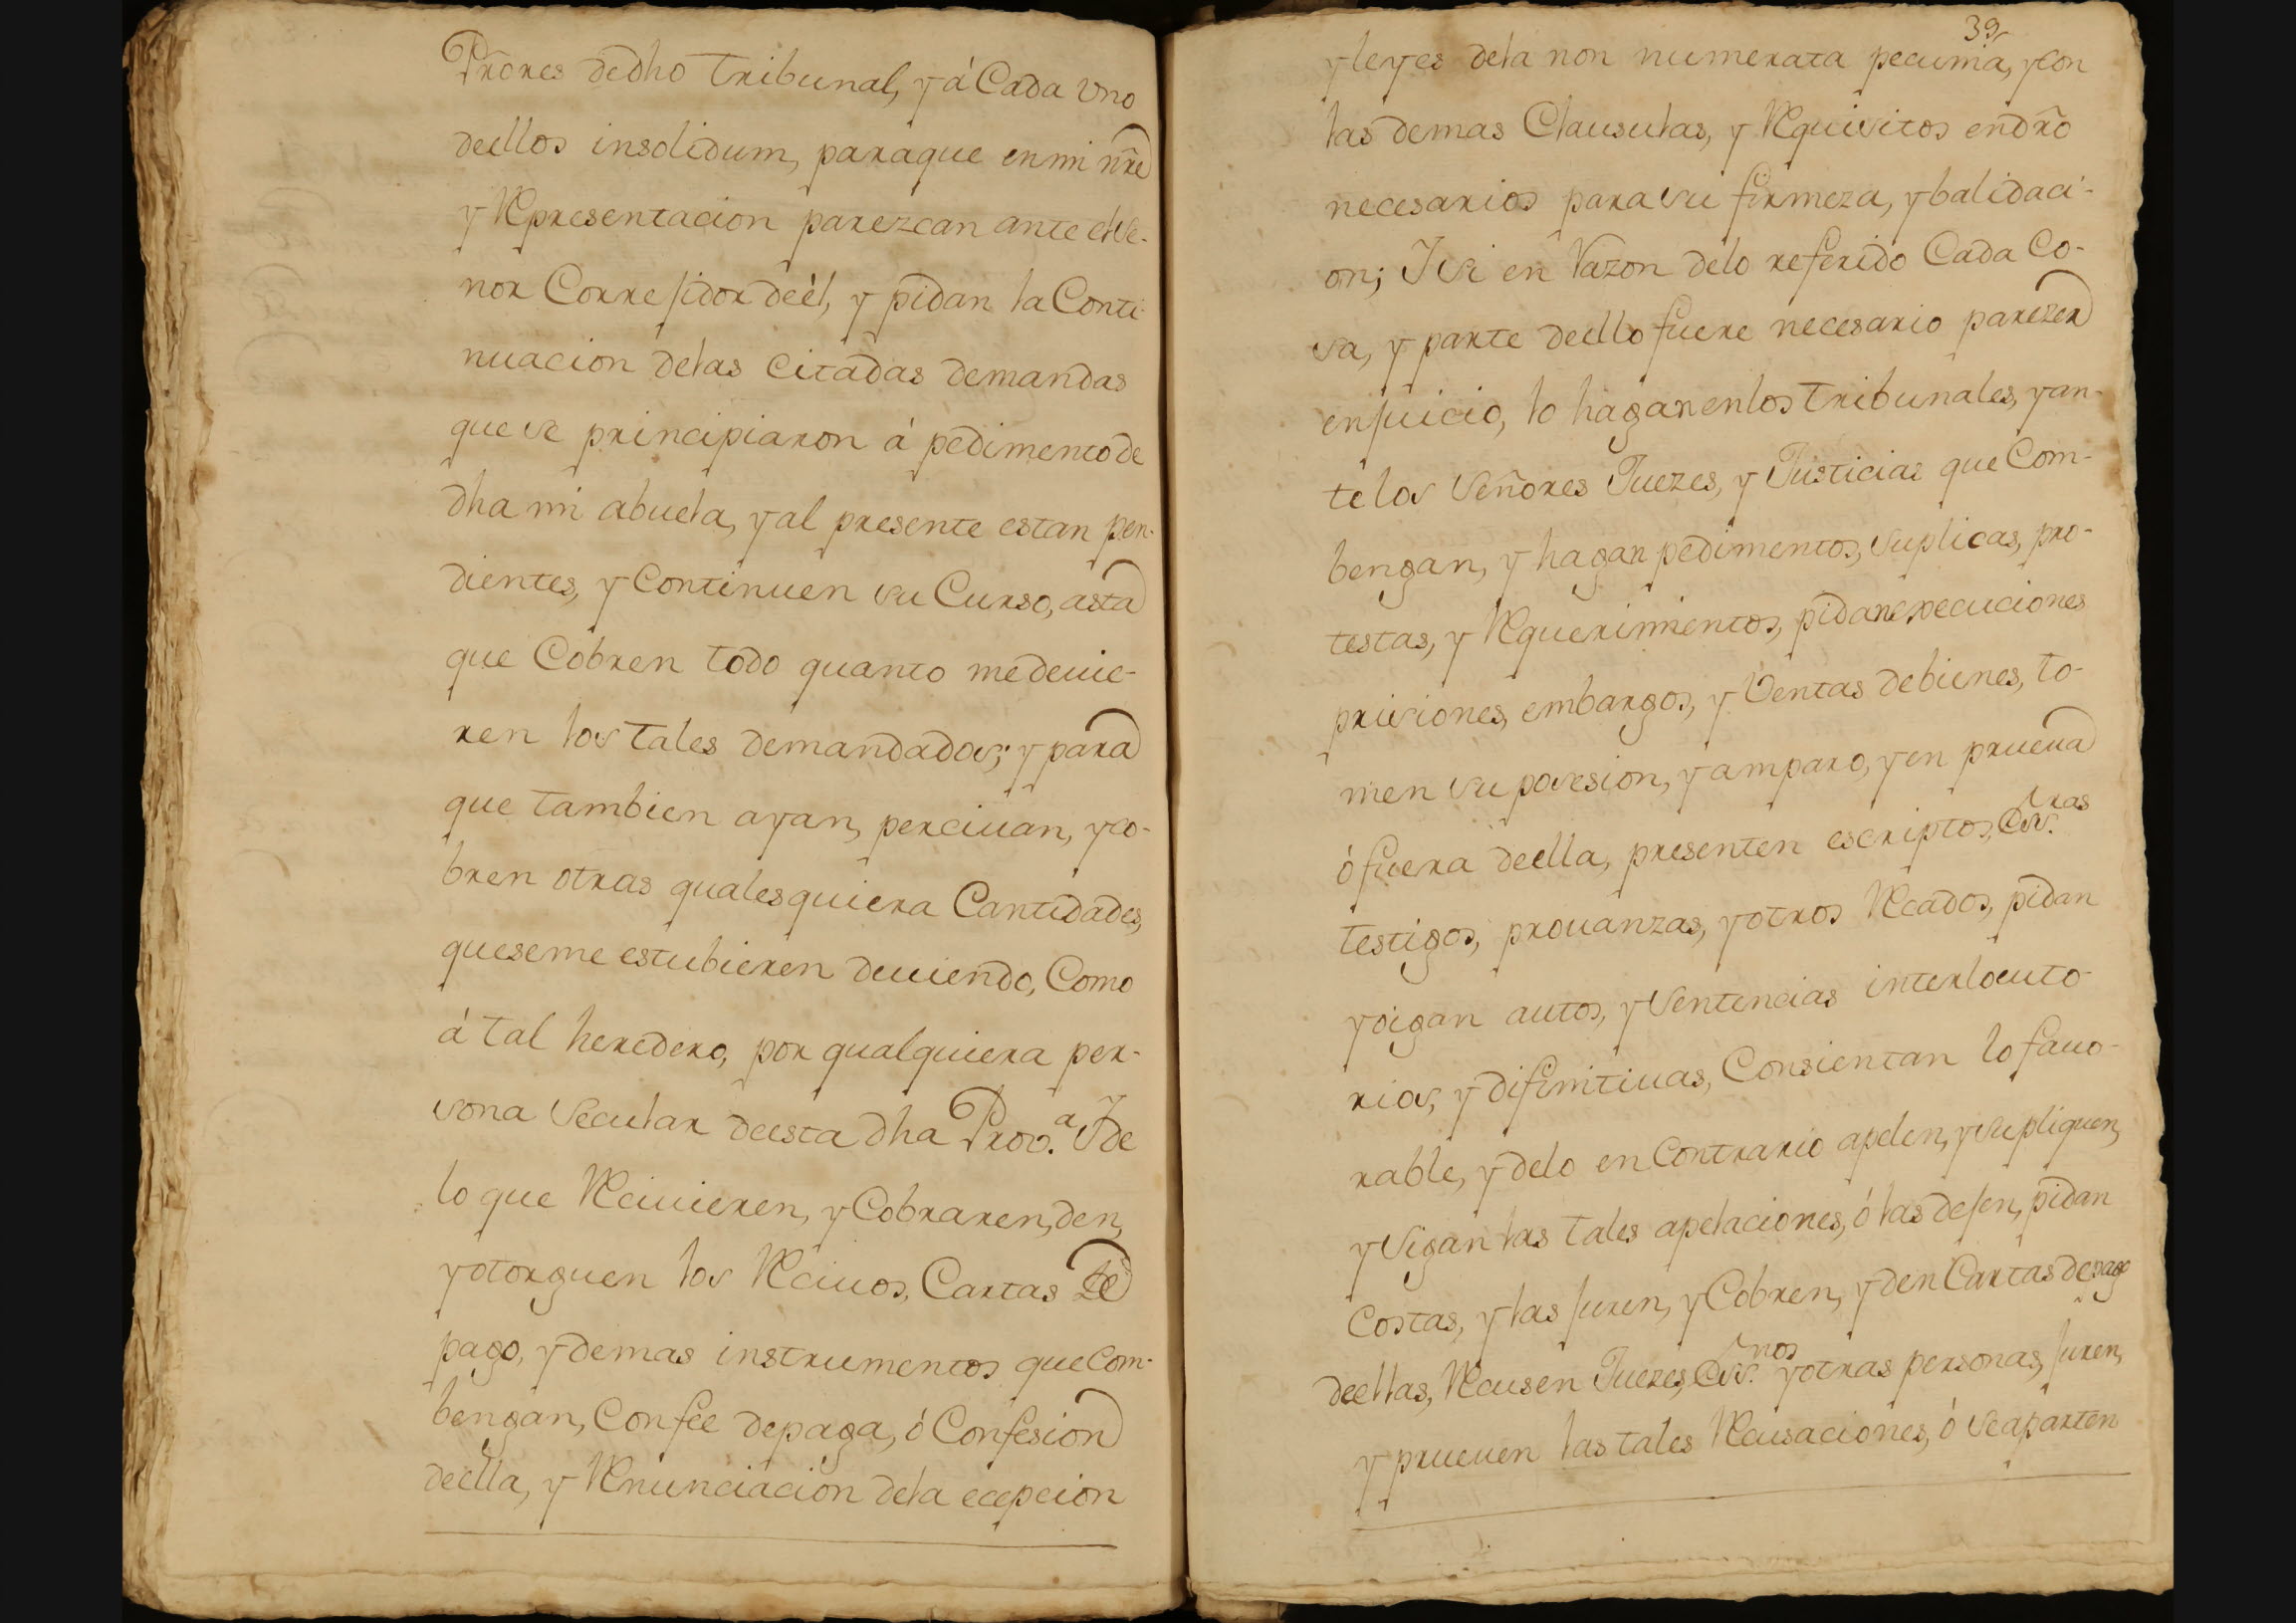 Prõres dedho Tribunal, y á Cada Vno
deellos insolidum, paraque enmi nr̃e
y Representacion parezcan ante else-
ñor Corregidor deél, y pidan la Conti
nuacion delas citadas demandas
quese principiaron á pedimentode
dha mi abuela, y al presente estan pen-
dientes, y Continuen su Curso, asta
que Cobren todo quanto medeuie-
ren los tales demandados; y para
que tambien ayan, perciuan, yco-
bren otras qualesquiera Cantidades,
queseme estubieren deuiendo, Como
á tal heredero, por qualquiera per-
sona Secular deesta dha Prov.ª Yde
lo que Reciuieren, y Cobraren, den,
yotorguen los Reciuos, Cartas de
pago, ydemas instrumentos quecom-
bengan, Confee depaga, ó Confesion
deella, y Renunciacion dela ecepcion
39
yleyes dela non numerata pecunia, ycon
las demas Clausulas, y Requisitos endr̃o
necesarios para su firmeza, ybalidaci-
on; Ysi en Razon delo referido Cada Co-
sa, y parte deello fuere necesario parezer
enjuicio, lo hagan enlos Tribunales, yan-
te los Señores Juezes, y Justicias que Com-
bengan, y hagan pedimentos, suplicas, pro-
testas, y Requerimientos, pidan execuciones
prisiones, embargos, y Ventas debienes, to-
men su posesion, y amparo, yen prueua
ó fuera deella, presenten escriptos, Ess.tras
testigos, prouanzas, yotros Recados, pidan
yoigan autos, ySentencias interlocuto-
rios, y difinitiuas, Consientan lo fauo-
rable, ydelo en Contrario apelen, ysupliquen,
y Sigan las tales apelaciones, ó las dejen, pidan
Costas, ylas juren, yCobren, y den Cartas depago
deellas, Recusen Juezes, Ess.nos yotras personas, juren,
y prueuen las tales Recusaciones, ó Seaparten